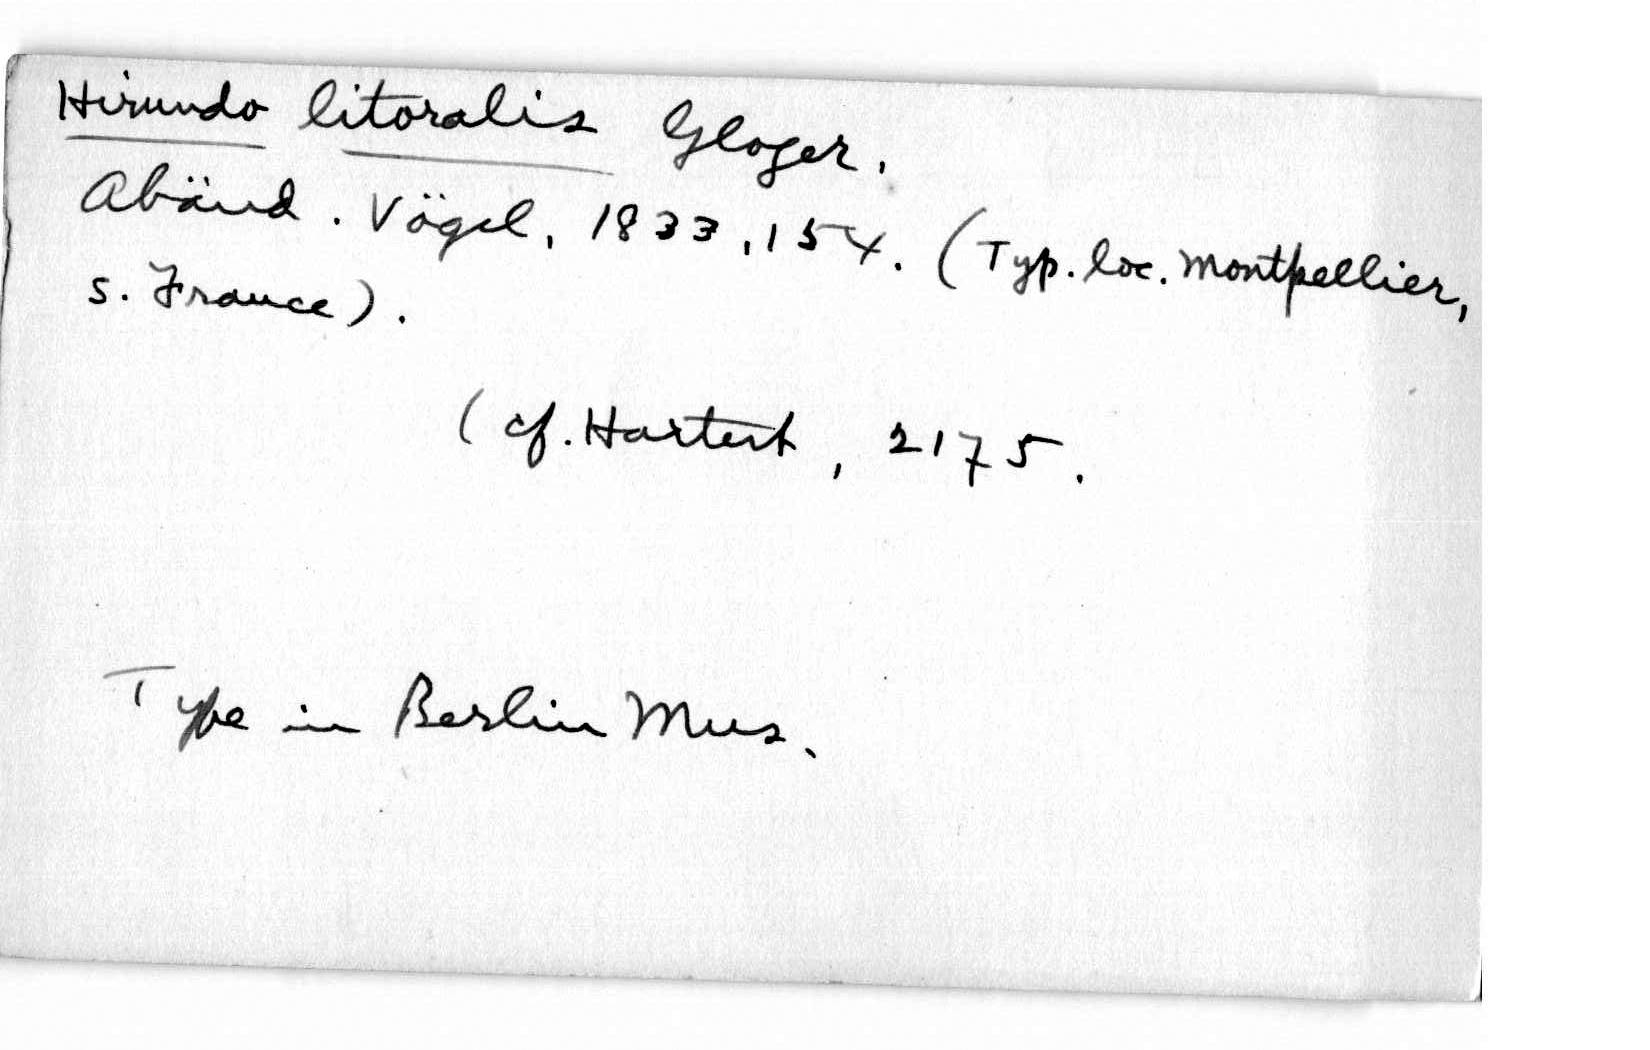 Hirundo litoralis Gloger,
Abänd. Vögel, 1833, 154. (Typ. loc. Montpellier,
s. France).
(cf. Hartert, 2175.
Type in Berlin Mus.